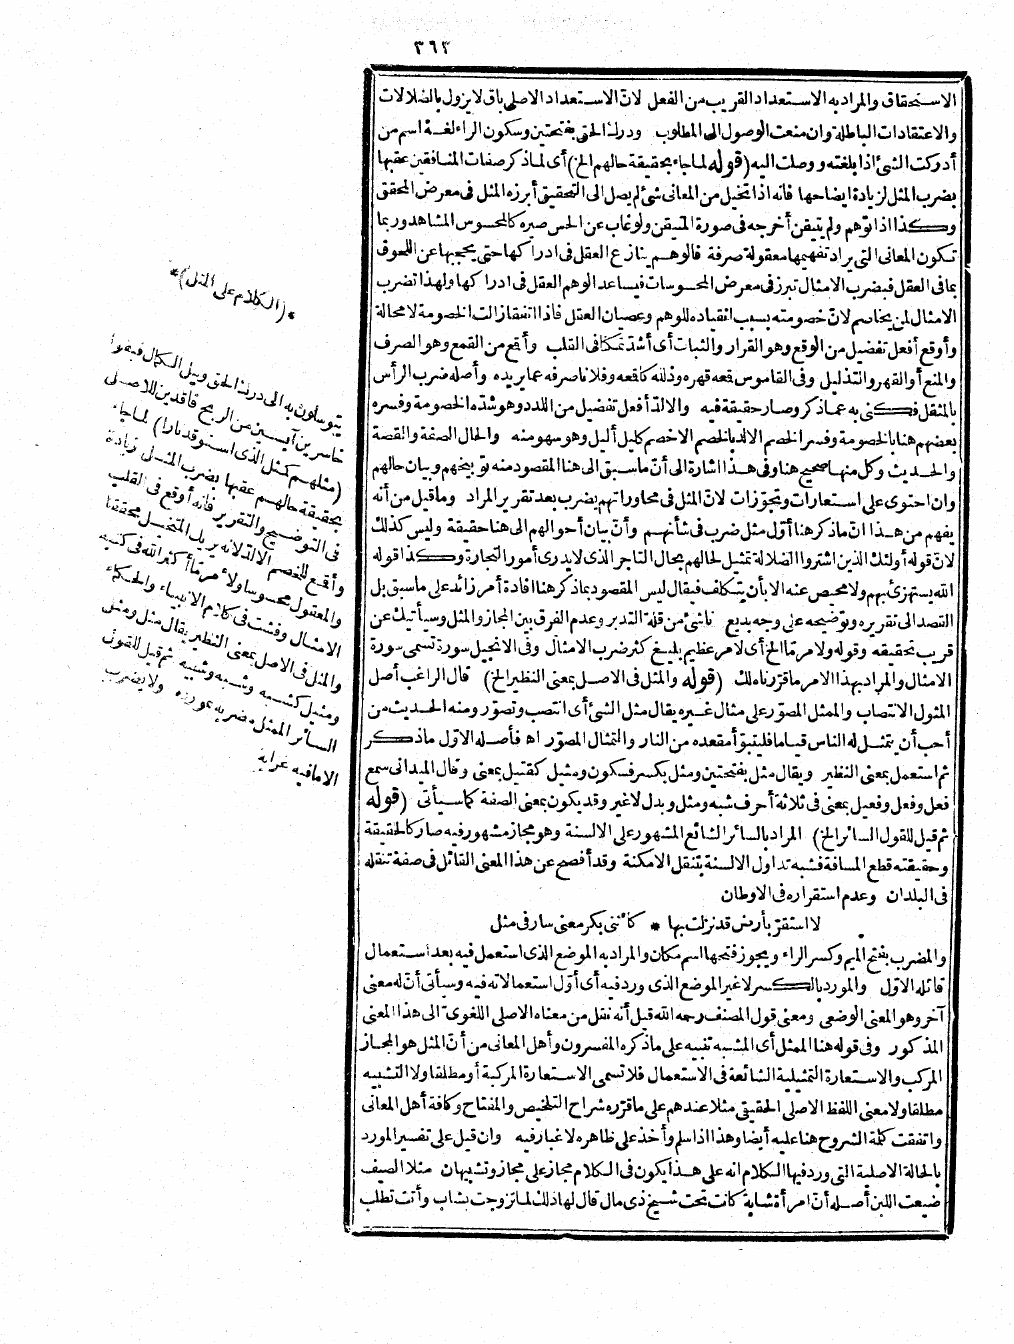 ٣٦٣
الاستحقاق والمراد به الاستعداد القريب من الفعل لانّ الاستعداد الاصلى باق لا يزول بالضلالات
والاعتقادات الباطلة وان منعت الوصول الى المطلوب ودرك الحق بفتحتين وسكون الراء لغة اسم من
أدركت الشئ اذا بلغته ووصلت اليه (قوله لما جاء بحقيقة حالهم الخ) أى لما ذكر صفات المنافقين عقبها
بضرب المثل لزيادة ايضاحها فانه اذا تخيل من المعانى شئ لم يصل الى التحقيق أبرزه المثل فى معرض المحقق
وكذا اذا توّهم ولم يتيقن أخرجه فى صورة المتيقن ولو غاب عن الحس صيره كالمحسوس المشاهد وربما
تكون المعانى التى يراد تفهيمها معقولة صرفة فالوهم ينازع العقل فى ادراكها حتى يحجبها عن اللحوق
بما فى العقل فبضرب الامثال تبرز فى معرض المحسوسات فيساعد الوهم العقل فى ادراكها ولهذا تضرب
الامثال لمن يخاصم لانّ خصومته بسبب انقياده للوهم وعصيان العقل فاذا اتفقا زالت الخصومة لا محالة
وأوقع أفعل تفضيل من الوقع وهو القرار والثبات أى أشدّ تمكنا فى القلب وأقمع من القمع وهو الصرف
والمنع أو القهر والتذليل وفى القاموس قمعه قهره وذلله كأقمعه وفلانا صرفه عما يريده وأصله ضرب الرأس
بالمثقل فكنى به عما ذكر وصار حقيقة فيه والالدّ أفعل تفضيل من اللدد وهو شدّة الخصومة وفسره
بعضهم هنا بالخصومة وفسر الخصم الالد بالخصم الاخصم كليل أليل وهو سهو منه والحال الصفة والقصة
والحديث وكل منها صحيح هنا وفى هذا اشارة الى أنّ ما سبق الى هنا المقصود منه توبيخهم وبيان حالهم
وان احتوى على استعارات وتجوّزات لانّ المثل فى محاوراتهم يضرب بعد تقرير المراد وما قيل من أنه
يفهم من هذا انّ ما ذكر هنا أول مثل ضرب فى شأنهم وأنّ بيان أحوالهم الى هنا حقيقة وليس كذلك
لانّ قوله أولئك الذين اشتروا الضلالة تمثيل لحالهم بحال التاجر الذى لا يدرى أمور التجارة وكذا قوله
الله يستهزئ بهم ولا محيص عنه الا بأن يتكلف فيقال ليس المقصود بما ذكر هنا افادة أمر زائد على ما سبق بل
القصد الى تقريره وتوضيحه على وجه بديع ناشئ من قلة التدبر وعدم الفرق بين المجاز والمثل وسيأتيك عن
قرب تحقيقه وقوله ولامر مّا الخ أى لامر عظيم بليغ كثر ضرب الامثال وفى الانجيل سورة تسمى سورة
الامثال والمراد بهذا الامر ما قرّرناه لك (قوله والمثل فى الاصل بمعنى النظير الخ) قال الراغب أصل
المثول الانتصاب والممثل المصوّر على مثال غيره يقال مثل الشئ أى انتصب وتصوّر ومنه الحديث من
أحب أن يتمثل له الناس قياما فليتبوّأ مقعده من النار والتمثال المصوّر اه فأصله الاوّل ما ذكر
ثم استعمل بمعنى النظير ويقال مثل بفتحتين ومثل بكسر فسكون ومثيل كقتيل بمعنى وقال الميدانى سمع
فعل وفعل وفعيل بمعنى فى ثلاثة أحرف شبه ومثل وبدل لا غير وقد يكون بمعنى الصفة كما سيأتى (قوله
ثم قيل للقول السائر الخ) المراد بالسائر الشائع المشهور على الالسنة وهو مجاز مشهور فيه صار كالحقيقة
وحقيقته قطع المسافة فشبه تداول الالسنة بتنقل الامكنة وقد أفصح عن هذا المعنى القائل فى صفة تنقله
فى البلدان وعدم استقراره فى الاوطان
لا استقرّ بأرض قد نزلت بها * كأننى بكر معنى سار فى مثل
والمضرب بفتح الميم وكسر الراء ويجوز فتحها اسم مكان والمراد به الموضع الذى استعمل فيه بعد استعمال
قائله الاوّل والمورد بالكسر لا غير الموضع الذى ورد فيه أى أوّل استعمالاته فيه وسيأتى أنّ له معنى
آخر وهو المعنى الوضعى ومعنى قول المصنف رحمه الله قيل أنه نقل من معناه الاصلى اللغوى الى هذا المعنى
المذكور وفى قوله هنا الممثل أى المشبه تنبيه على ما ذكره المفسرون وأهل المعانى من أنّ المثل هو المجاز
المركب والاستعارة التمثيلية الشائعة فى الاستعمال فلا تسمى الاستعارة المركبة أو مطلقا ولا التشبيه
مطلقا ولا معنى اللفظ الاصلى الحقيقى مثلا عندهم على ما قرّره شراح التلخيص والمفتاح وكافة أهل المعانى
واتفقت كلمة الشروح هنا عليه أيضا وهذا اذا سلم وأخذ على ظاهره لا غبار فيه وان قيل على تفسير المورد
بالحالة الاصلية التى ورد فيها الكلام انه على هذا يكون فى الكلام مجاز على مجاز وتشبيهان مثلا الصيف
ضيعت اللبن أصله أنّ امرأة شابة كانت تحت شيخ ذى مال قال لها ذلك لما تزوجت بشاب وأتت تطلب
*(الكلام على المثل)*
يتوسلون به الى درك الحق ونيل الكمال فبقوا
خاسرين آيسين من الربح فاقدين للاصل
(مثلهم كمثل الذى استوقد نارا) لما جاء
بحقيقة حالهم عقبها بضرب المثل زيادة
فى التوضيح والتقرير فانه أوقع فى القلب
وأقمع للخصم الالد لانه يريك المتخيل محققا
والمعقول محسوسا ولامر مّا أكثر الله فى كتبه
الامثال وفشت فى كلام الانبياء والحكماء
والمثل فى الاصل بمعنى النظير يقال مثل ومثل
ومثيل كشبه وشبه وشبيه ثم قيل للقول
السائر الممثل مضربه بمورده ولا يضرب
الا ما فيه غرابة